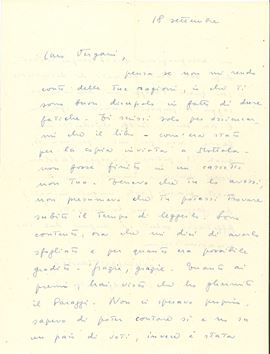 18 settembre
Caro Vergani,
pensa se non mi rendo
conto delle tue ragioni, io che ti
sono buon discepolo in fatto di dure
fatiche. Ti scrissi solo per assicurar
mi che il libro – com'era stato
per la copia inviata a
non fosse finito in un cassetto
non tuo. Pensavo che tu lo avessi,
non presumevo che tu potessi trovare
subito il tempo di leggerlo. Sono
contento, ora che mi dici di averlo
sfogliato e per quanto era possibile
gradito. Grazie, grazie. Quanto al
premio, hai visto che ho
il Paraggi. Non ci speravo proprio,
sapevo di poter contare sì e no su
un paio di voti, invece è stata